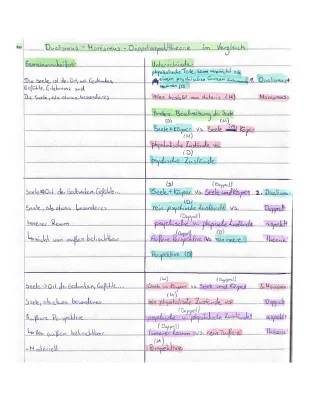 Dualismus - Monismus - Doppelaspekttheorie im Vergleich
Gemeinsamkeiten
Unterschiede
Die Seele ist der Ort, wo Gedanken,
Gefühle, Erlebnisse sind
Die Seele, als etwas besonderes
1. Dualismus +
Monismus
alles besteht aus Materie (M)
andere Beschreibung der Seele
(D) (M)
Seele + Körper vs. Seele Körper
(M)
physikalische Zustände vs
(D)
psychische Zustände
Seele → Ort der Gedanken, Gefühle...
Seele, als etwas besonderes
innerer Raum
↳ nicht von außen betrachtbar
(D) (Doppel)
Seele + Körper vs Seele und Körper
2. Dualismus
rein psychische Zustände vs.
Doppel-
(Doppel)
psychische u. physische Zustände
aspekt
(Doppel) (D)
äußere Perspektive vs. rein innere
theorie
Perspektive (D)
Seele → Ort der Gedanken, Gefühle...
Seele, als etwas besonderes
Äußere Perspektive
↳ von außen betrachtbar
- Materiell
(M) (Doppel)
Seele Körper vs Seele und Körper
3. Monismus
(M)
rein physikalische Zustände vs
Doppel-
(Doppel)
psychische u. physische Zustände
aspekt
(Doppel)
innerer Raum vs. rein äußere
theorie
(M)
Perspektive